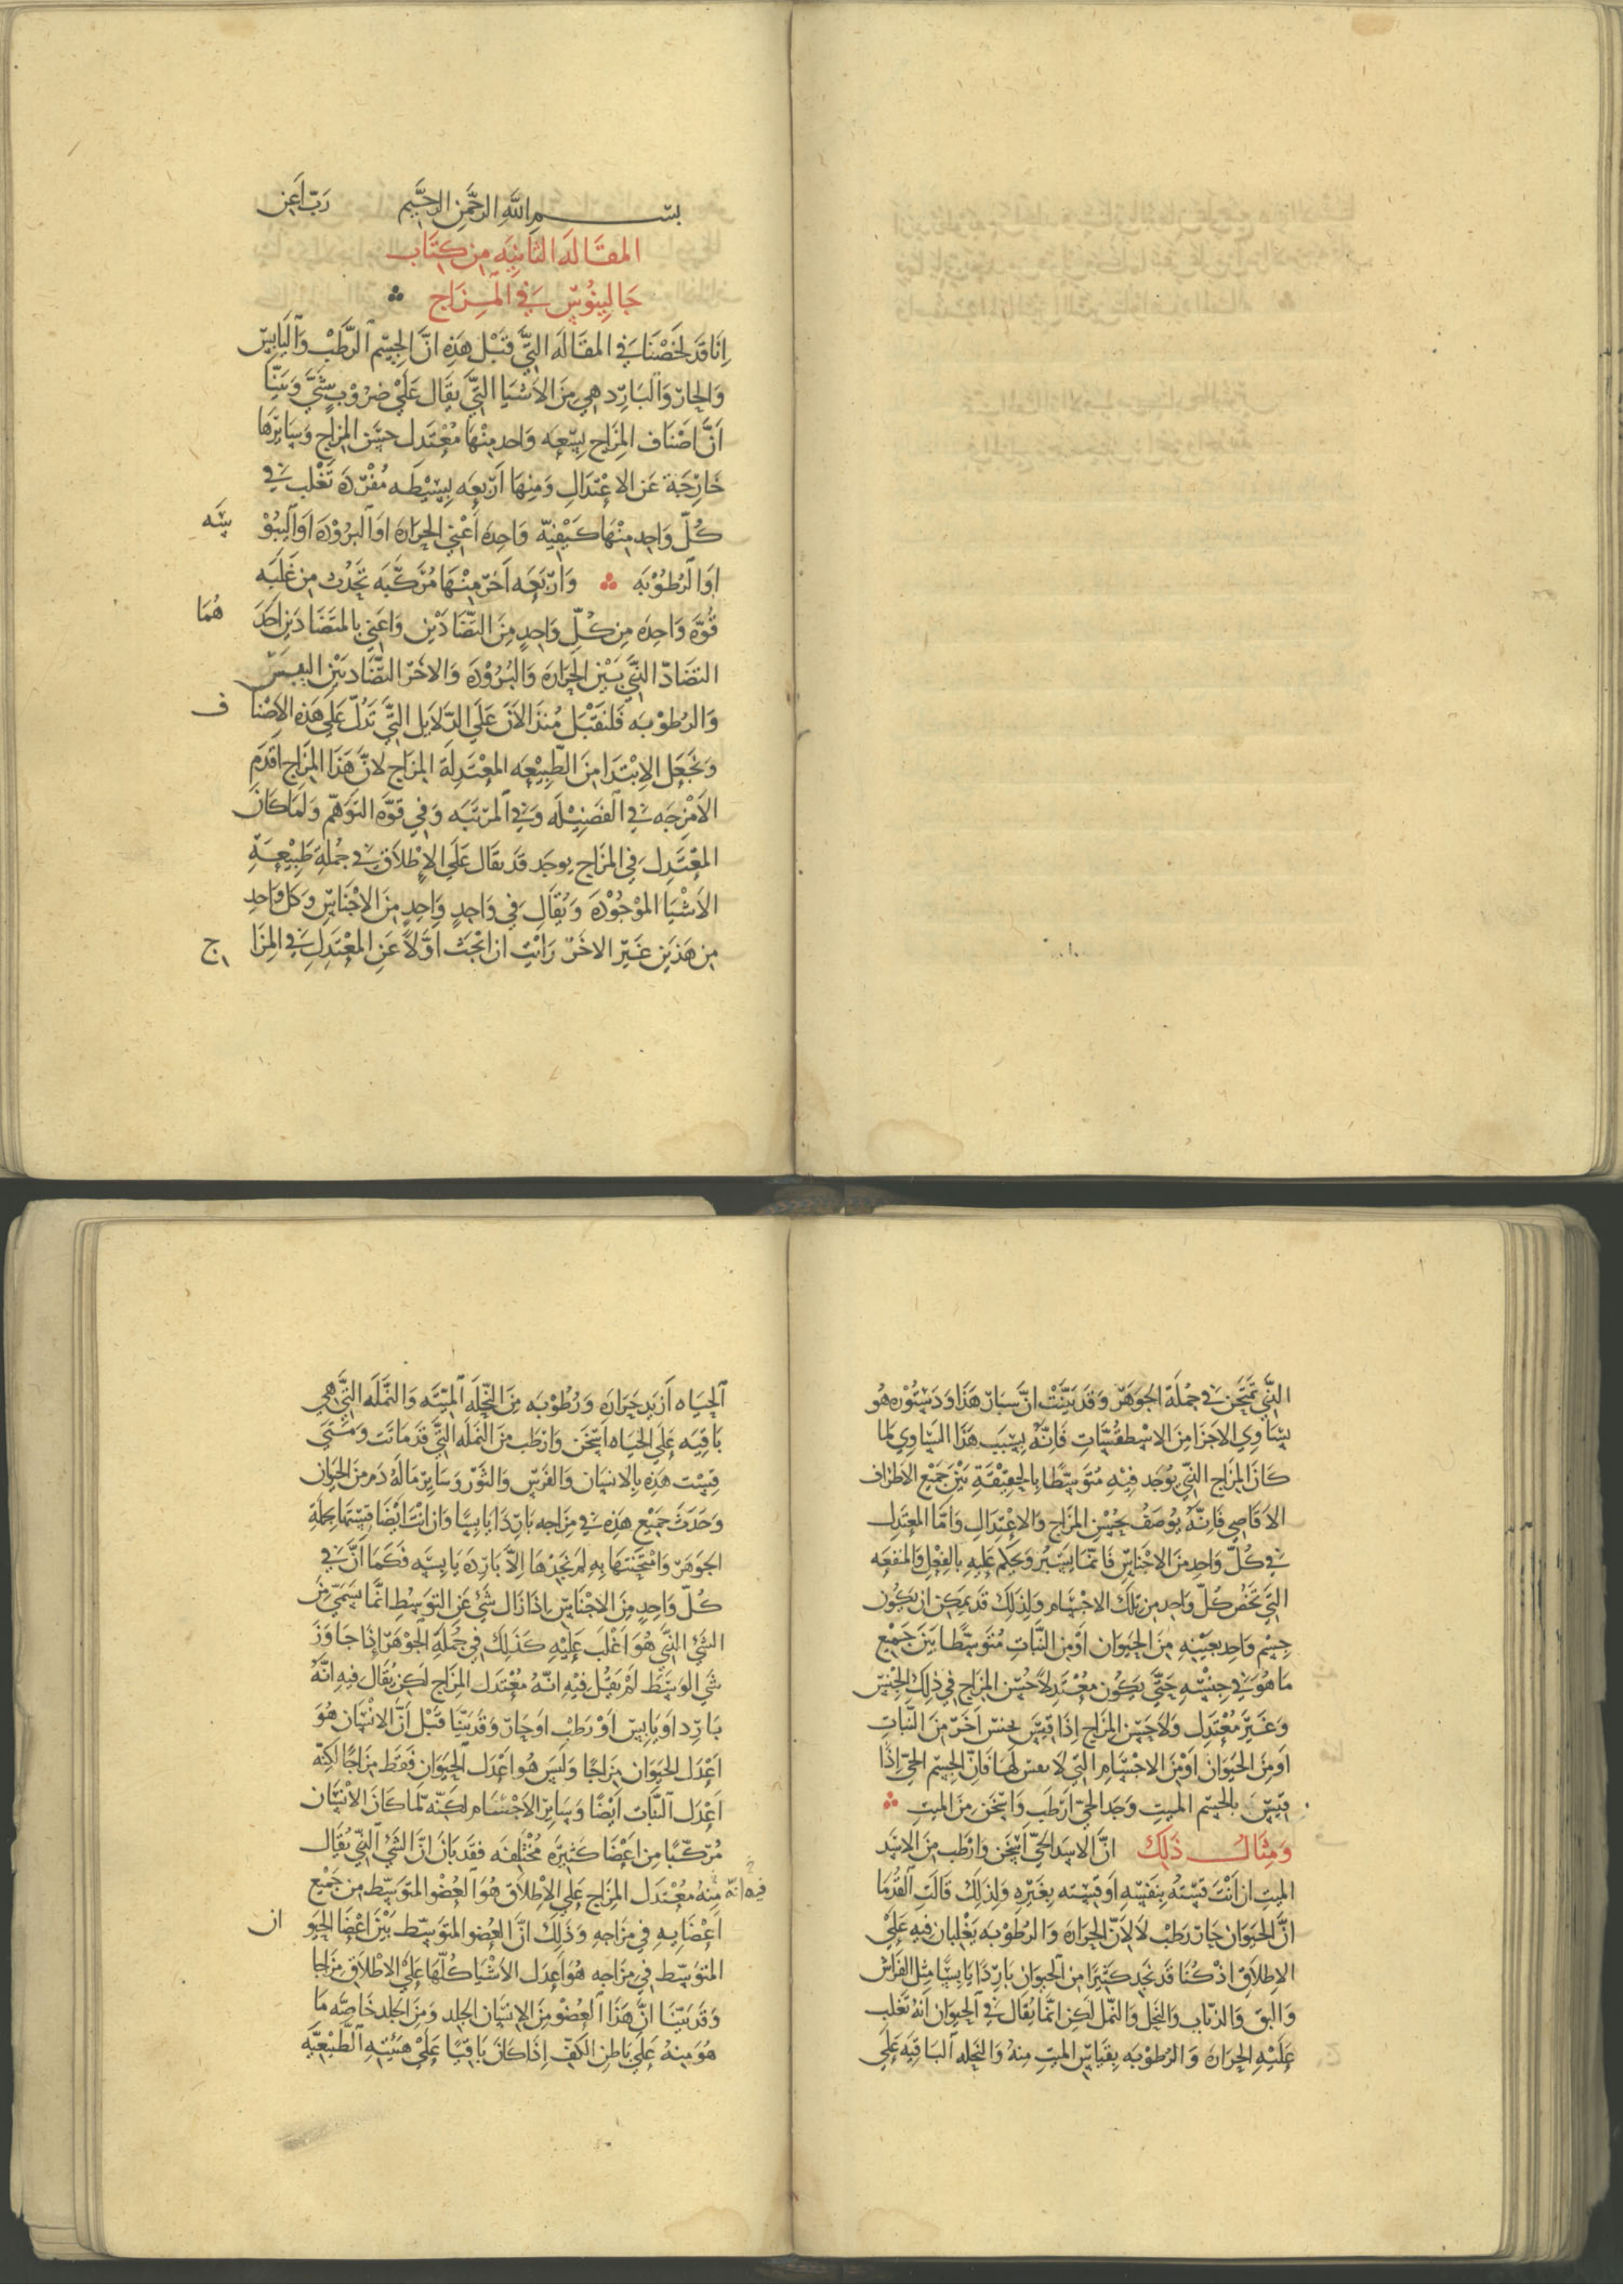 بسم الله الرحمن الرحيم رب اعن
المقاله الثانيه من كتاب
جالينوس في المزاج
انا قد لخصنا في المقاله التي قبل هذه ان الجسم الرطب واليابس
والحار والبارد هي من الاشيا التي يقال علي ضروب شتي وبينا
ان اصناف المزاج تسعه واحد منها معتدل حسن المزاج وسايرها
خارجة عن الاعتدال ومنها اربعه بسيطه مفرده تغلب في
كل واحد منها كيفيه واحده اعني الحراره او البروده او اليبوسه
او الرطوبه واربعه اخر منها مركبه تحدث من غلبه
قوه واحده من كل واحد من التضادين واعني بالمتضادين احدهما
التضاد الذي بين الحراره والبروده والاخر التضاد بين اليبس
والرطوبه فلنقبل منذ الان علي الدلايل التي تدل علي هذه الاصناف
ونجعل الابتدا من الطبيعه المعتدله المزاج لان هذا المزاج اقدم
الامزجه في الفضيله وفي المرتبه وفي قوه التوهم ولما كان
المعتدل في المزاج يوجد قد يقال علي الاطلاق في جمله طبيعة
الاشيا الموجوده ويقال في واحد واحد من الاجناس وكل واحد
من هذين غير الاخر رايت ان ابحث اولا عن المعتدل في المزاج
الذي تمتحن في جملة الجوهر وقد بينت ان سبار هذا ودستوره هو
تساوي الاجزا من الاسطقسات فانه بسبب هذا التساوي لما
كان المزاج الذي يوجد فيه متوسطا بالحقيقة بين جميع الاطراف
الاقاصي فانه يوصف بحسن المزاج والاعتدال واما المعتدل
في كل واحد من الاجناس فانما يسبر ويحكم عليه بالفعل والمنفعه
التي تخص كل واحد من تلك الاجسام ولذلك قد يمكن ان يكون
جسم واحد بعينه من الحيوان او من النبات متوسطا بين جميع
ما هو في جنسه حتي يكون معتدلا حسن المزاج في ذلك الجنس
وغير معتدل ولا حسن المزاج اذا قيس بجنس اخر من النبات
او من الحيوان او من الاجسام التي لا نفس لها فان الجسم الحي اذا
قيس بالجسم الميت وجد الحي ارطب واسخن من الميت
ومثال ذلك ان الاسد الحي اسخن وارطب من الاسد
الميت ان انت قسته بنفسه او قسته بغيره ولذلك قالت القدما
ان الحيوان حار رطب لا لان الحراره والرطوبه يغلبان فيه علي
الاطلاق اذ كنا قد نجد كثيرا من الحيوان باردا يابسا مثل الفراش
والبق والذباب والنحل والنمل لكن انما يقال في الحيوان انه تغلب
عليه الحراره والرطوبه بقياس الميت منه والنحله الباقيه علي
الحياه ازيد حراره ورطوبه من النحله الميته والنمله التي هي
باقيه علي الحياه اسخن وارطب من النمله التي قد ماتت ومتي
قيست هذه بالانسان والفرس والثور وساير ما له دم من الحيوان
وجدت جميع هذه في مزاجه باردا يابسا وان انت ايضا قستها بجملة
الجوهر وامتحنتها به لم تجدها الا بارده يابسه فكما ان في
كل واحد من الاجناس اذا زال شي عن التوسط انما سمي من
الشي الذي هو اغلب عليه كذلك في جملة الجوهر اذا جاوز
شي الوسط لم يقل فيه انه معتدل المزاج لكن يقال فيه انه
بارد او يابس او رطب او حار وقد بينا قبل ان الانسان هو
اعدل الحيوان مزاجا وليس هو اعدل الحيوان فقط مزاجا لكنه
اعدل النبات ايضا وساير الاجسام لكنه لما كان الانسان
مركبا من اعضا كثيره مختلفه فقد بان ان الشي الذي يقال
فيه انه منه معتدل المزاج علي الاطلاق هو العضو المتوسط من جميع
اعضايه في مزاجه وذلك ان العضو المتوسط بين اعضا الحيوان
المتوسط في مزاجه هو اعدل الاشيا كلها علي الاطلاق مزاجا
وقد بينا ان هذا العضو من الانسان الجلد ومن الجلد خاصه ما
هو منه علي باطن الكف اذا كان باقيا علي هيئته الطبيعيه